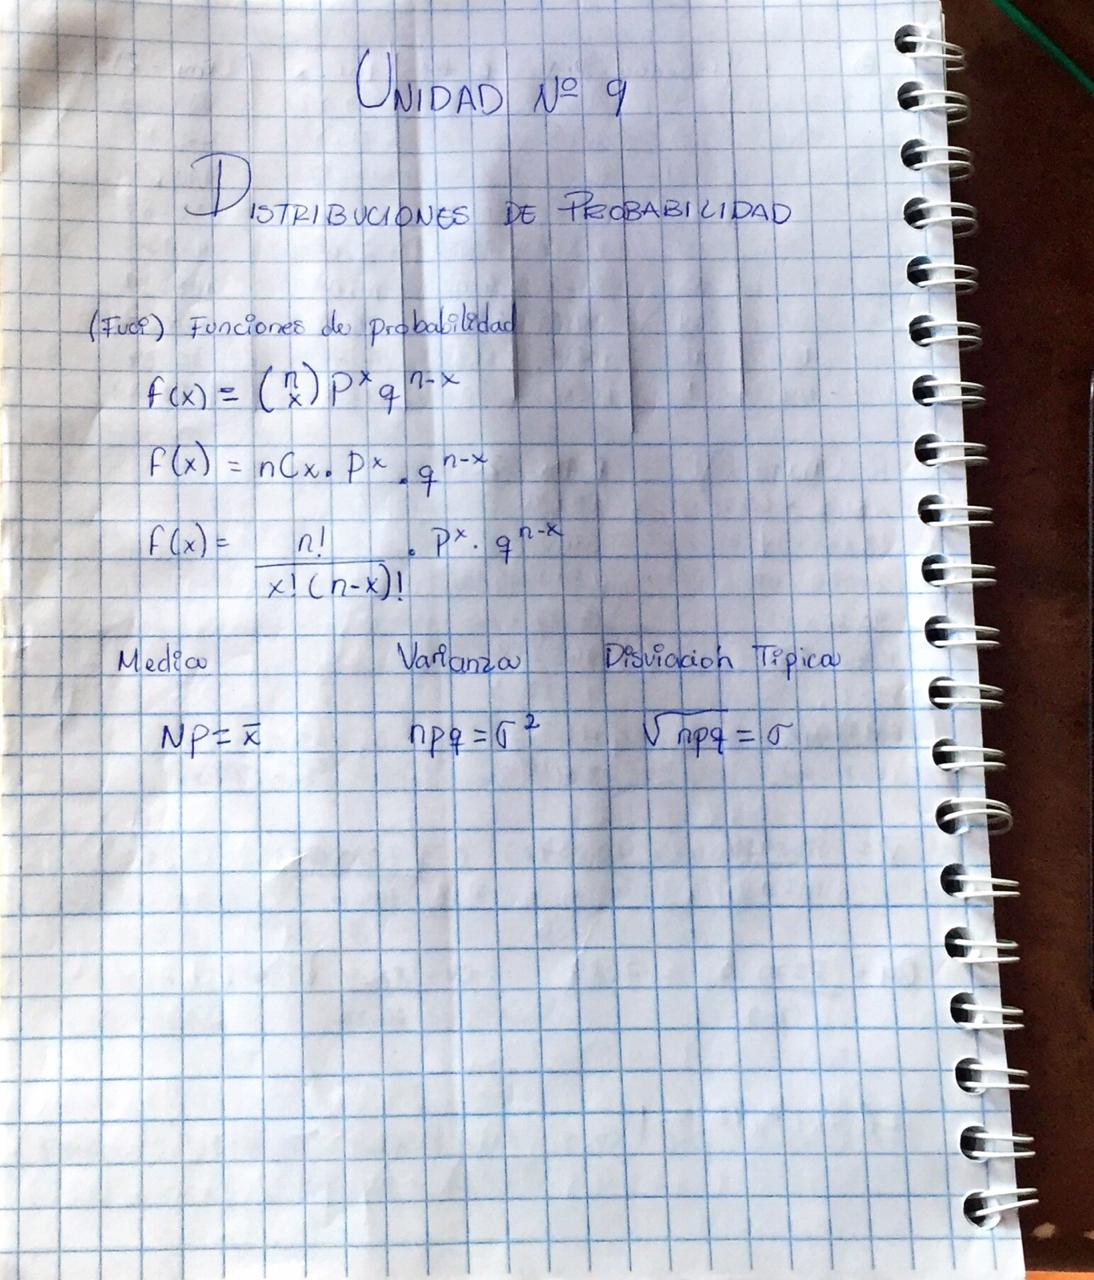 UNIDAD Nº 9
DISTRIBUCIONES DE PROBABILIDAD
Funciones de probabilidad
f(x) = (n x) p^x q^n-x
f(x) = nCx . p^x . q^n-x
f(x) = n! / x!(n-x)! . p^x . q^n-x
Media Varianza Disviacion Tipica
Np = x̄ npq = σ² √npq = σ